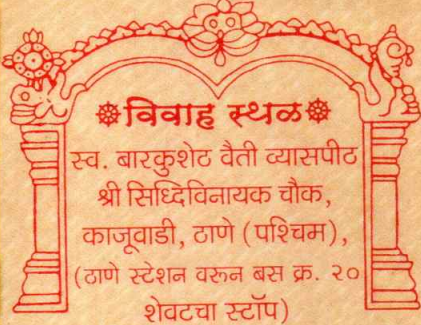 विवाह स्थळ
स्व. बारकुशेठ वैती व्यासपीठ
श्री सिध्दिविनायक चौक,
काजूवाडी, ठाणे (पश्चिम),
(ठाणे स्टेशन वरून बस क्र. २०
शेवटचा स्टॉप)